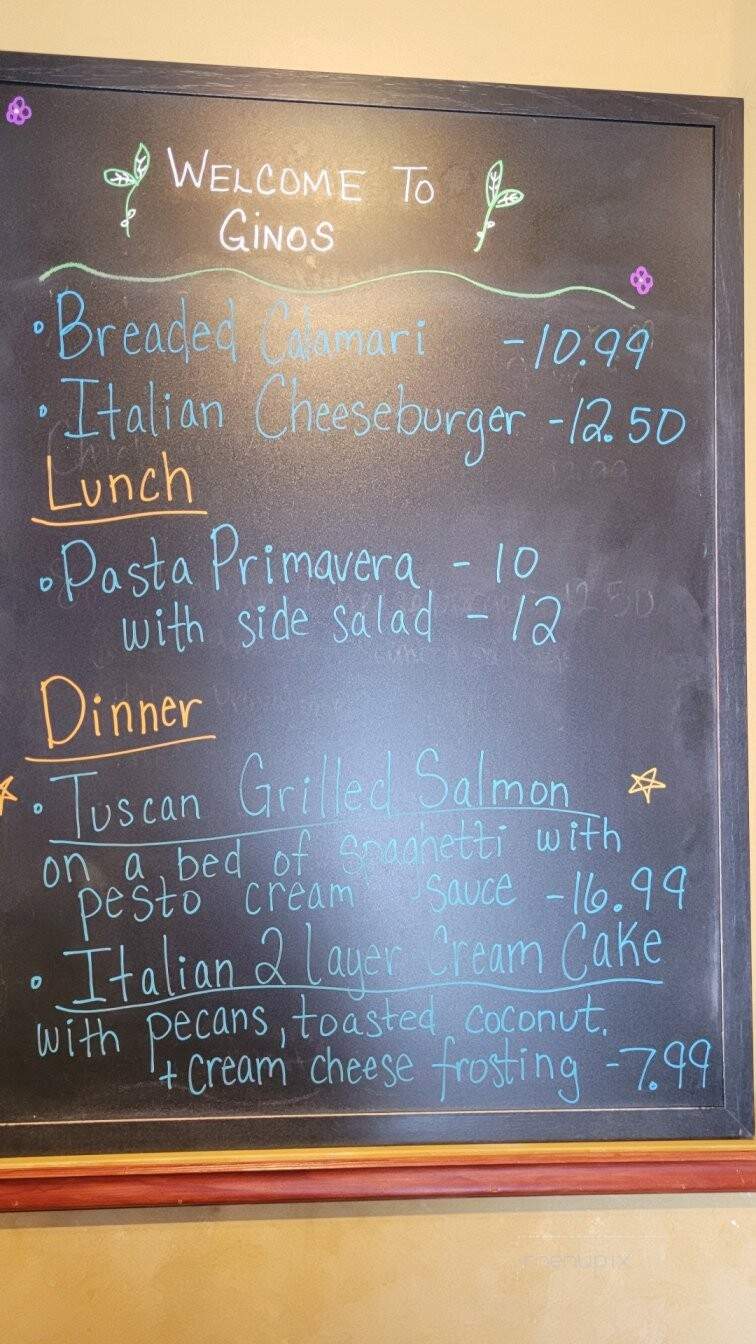 WELCOME TO
GINOS
• Breaded Calamari -10.99
• Italian Cheeseburger -12.50
Lunch
• Pasta Primavera - 10
with side salad - 12
Dinner
• Tuscan Grilled Salmon
on a bed of spaghetti with
pesto cream sauce -16.99
• Italian 2 layer Cream Cake
with pecans, toasted coconut,
+ cream cheese frosting -7.99
menupix